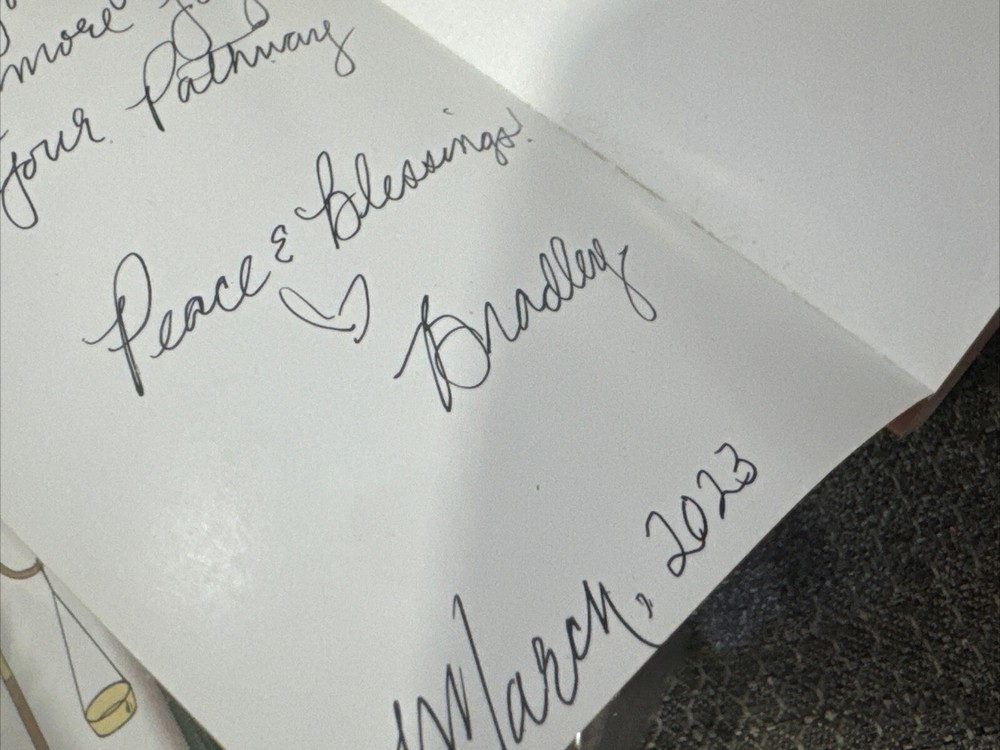 more
your Pathway
Peace & Blessings!
Bradley
March, 2023